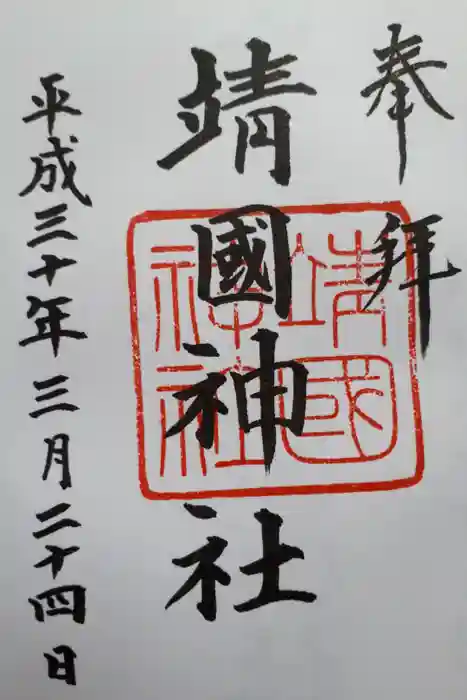 奉拜
靖國神社
平成三十年三月二十四日
靖國
神社